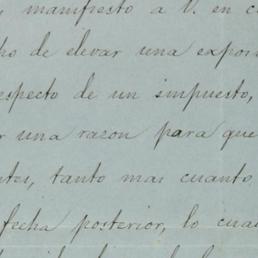 manifiesto a V. en c
ho de elevar una expos
especto de un impuesto,
r una razon para que
tes, tanto mas cuanto
fecha posterior, lo cua